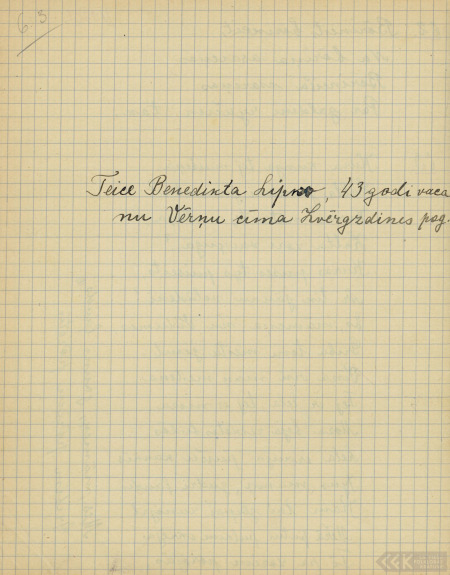 63
Teice Benedikta Lipko, 43 godi vaca
nu Vērņu cīma Zvērgzdines pog.